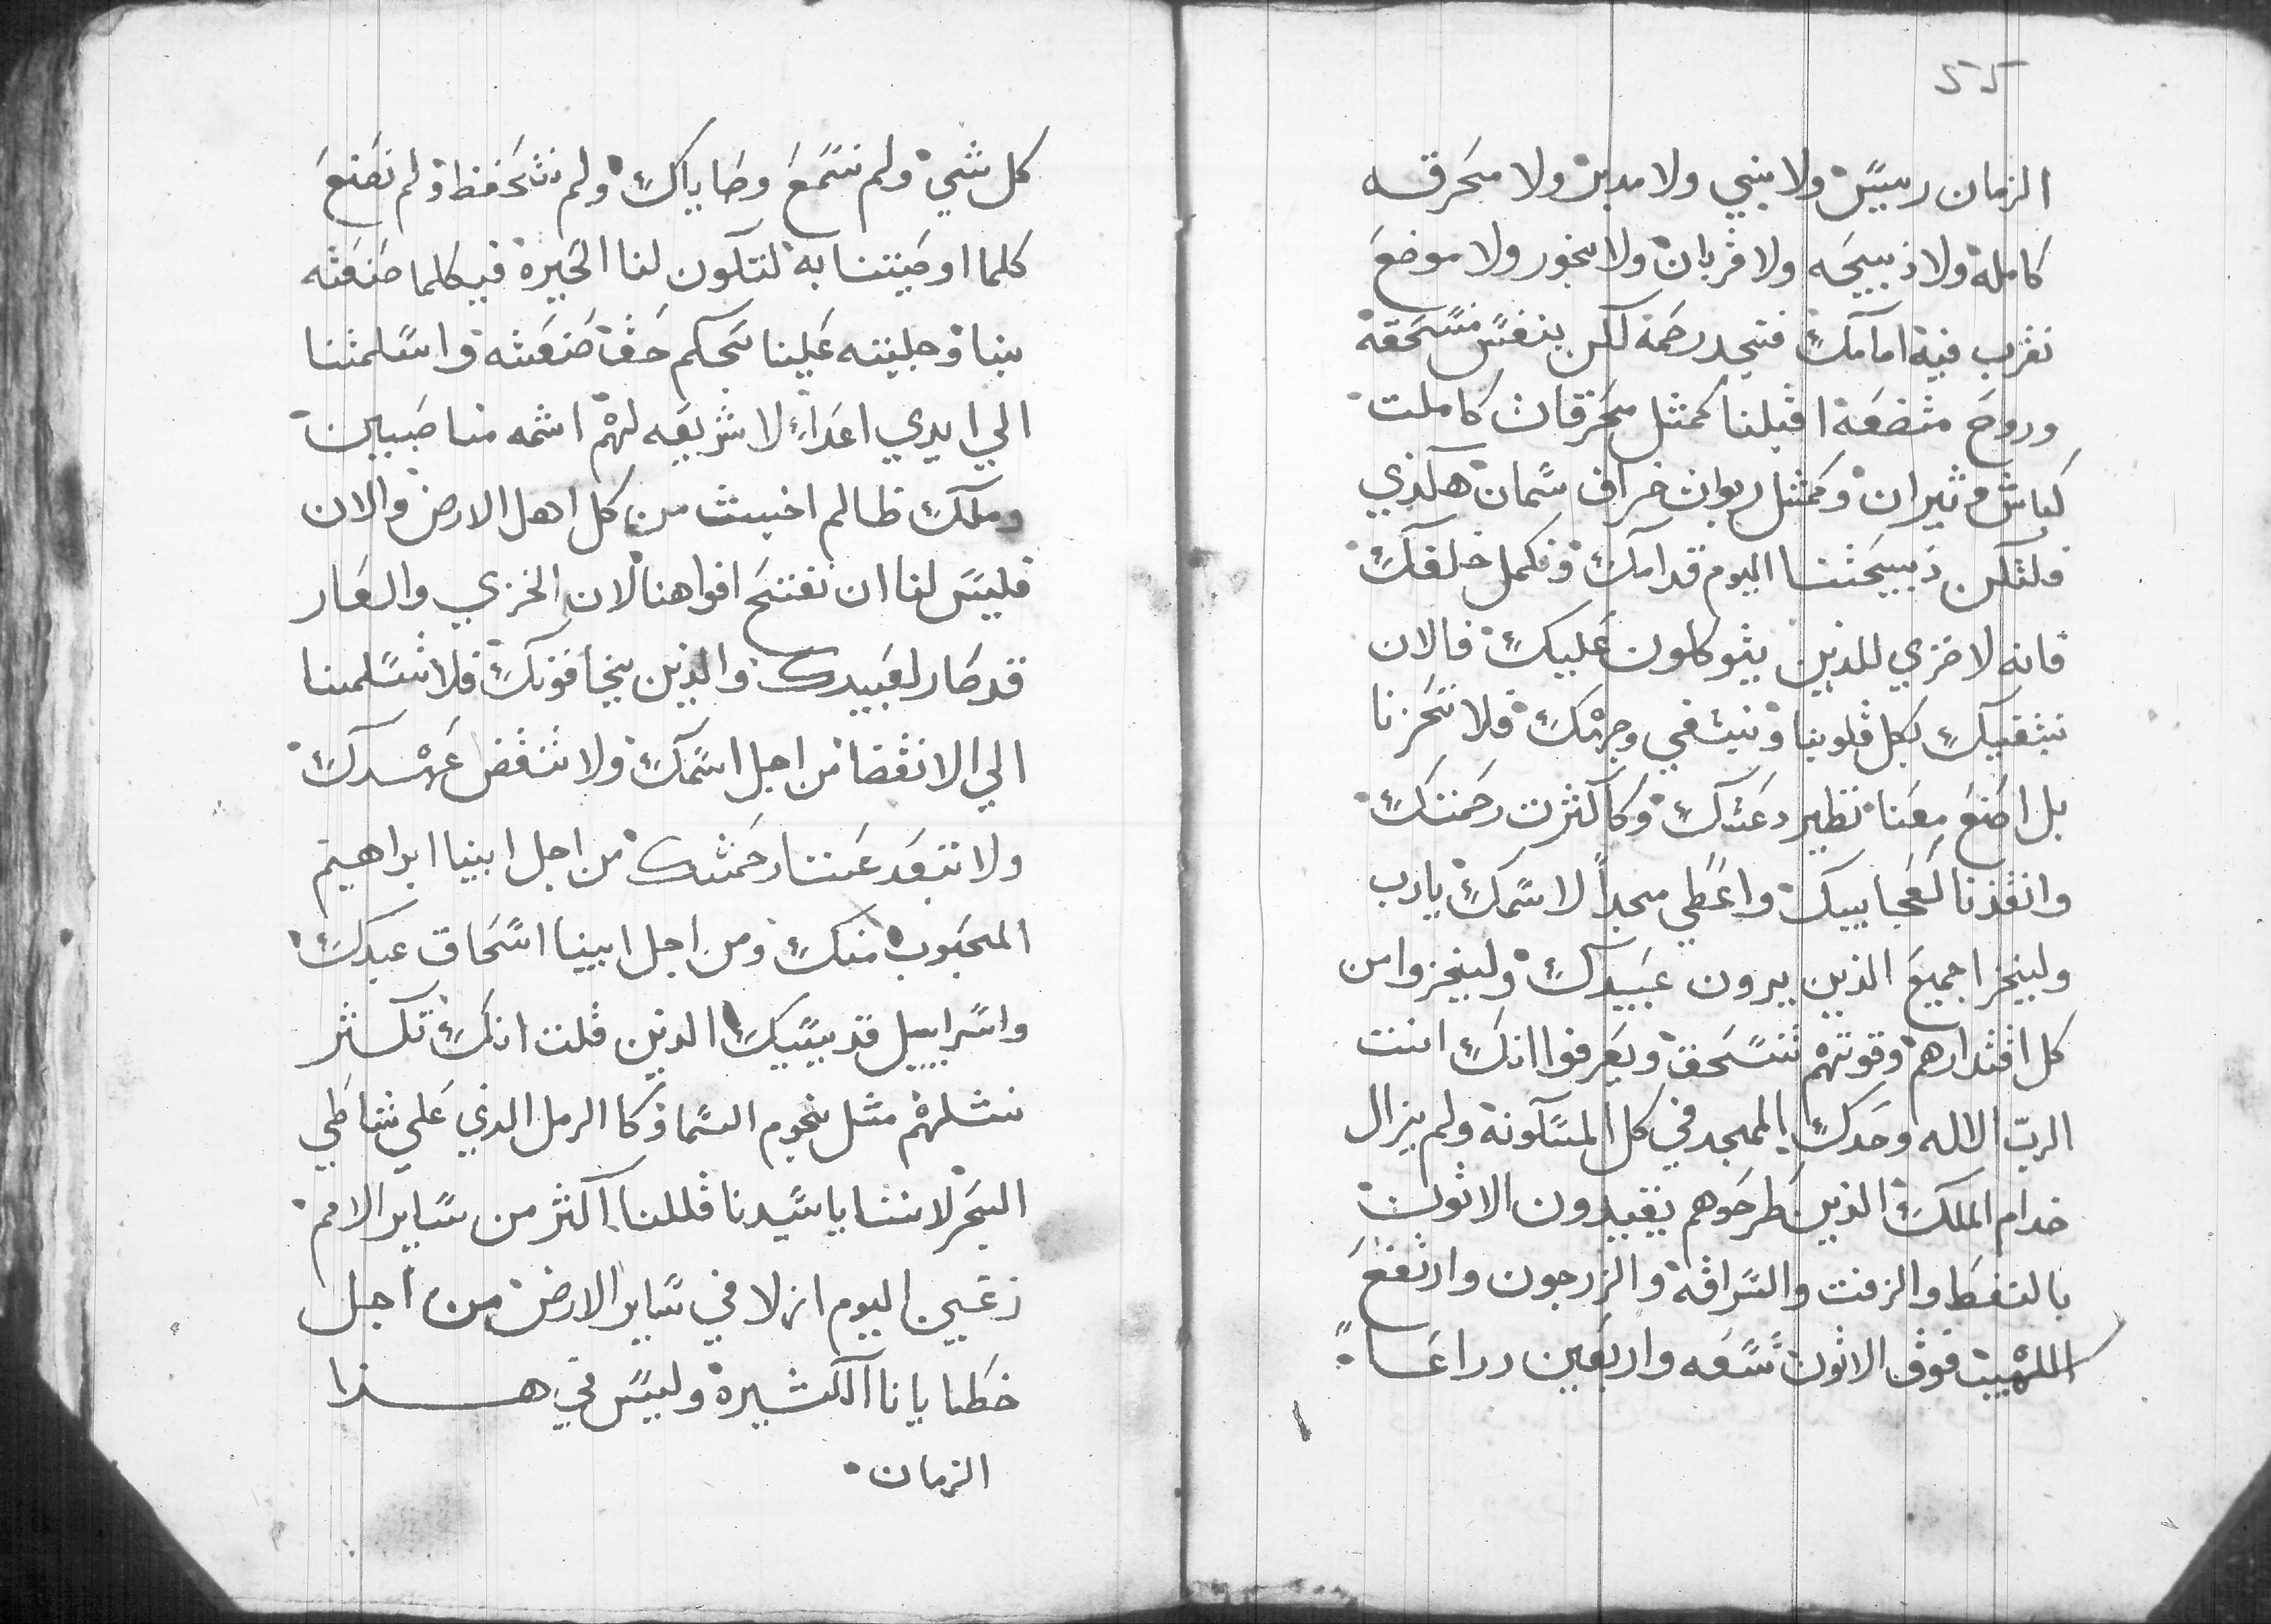 كل شي ولم نسمع وصاياك ولم نتحفظ ولم نصنع
كلما اوصيتنا به لتكون لنا الخيرة فبكلما صنعته
بنا وجلبته علينا بحكم حق صنعته واسلمتنا
الي ايدي اعداء لا شريعه لهم اثمه مناصبين
وملك ظالم اخبث من كل اهل الارض والان
فليس لنا ان نفتح افواهنا لان الخزي والعار
قد صار لعبيدك والذين يخافونك فلا تسلمنا
الي الانقضا من اجل اسمك ولا تنقض عهدك
ولا تبعد عنا رحمتك من اجل ابينا ابراهيم
المحبوب منك ومن اجل ابينا اسحاق عبدك
واسراييل قديسيك الدين قلت انك تكثر
نسلهم مثل نجوم السما وكا الرمل الدي علي شاطي
البحر لاننا يا سيدنا قللنا اكثر من ساير الامم
نحن اليوم ازلا في ساير الارض من اجل
خطايانا الكثيرة وليس في هذا
الزمان
55
الزمان رييس ولا نبي ولا مدبر ولا محرقه
كامله ولا ذبيحه ولا قربان ولا بخور ولا موضع
نقرب فيه امامك فنجد رحمة لكن بنفس منسحقة
وروح متضعة اقبلنا كمثل محرقات كاملت
كباش وثيران وكمثل ربوات خراف سمان هكذي
فلتكن ذبيحتنا اليوم قدامك وتكمل خلفك
فانه لا خزي للذين يتوكلون عليك فالان
نتقيك بكل قلوبنا ونبتغي وجهك فلا تحزنا
بل اصنع معنا نظير دعتك وكا كثرت رحمتك
وانقذنا كعجاييبك واعطي مجداً لاسمك يارب
وليخزا جميع الذين يرون عبيدك وليخزوا من
كل اقتدارهم وقوتهم تنسحق ويعرفوا انك انت
الرب الاله وحدك الممجد في كل المسكونة ولم يزال
خدام الملك الذين طرحوهم يقيدون الاتون
بالنفط والزفت والسراقة والزرجون وارتفع
اللهيب فوق الاتون تسعه واربعين دراعا